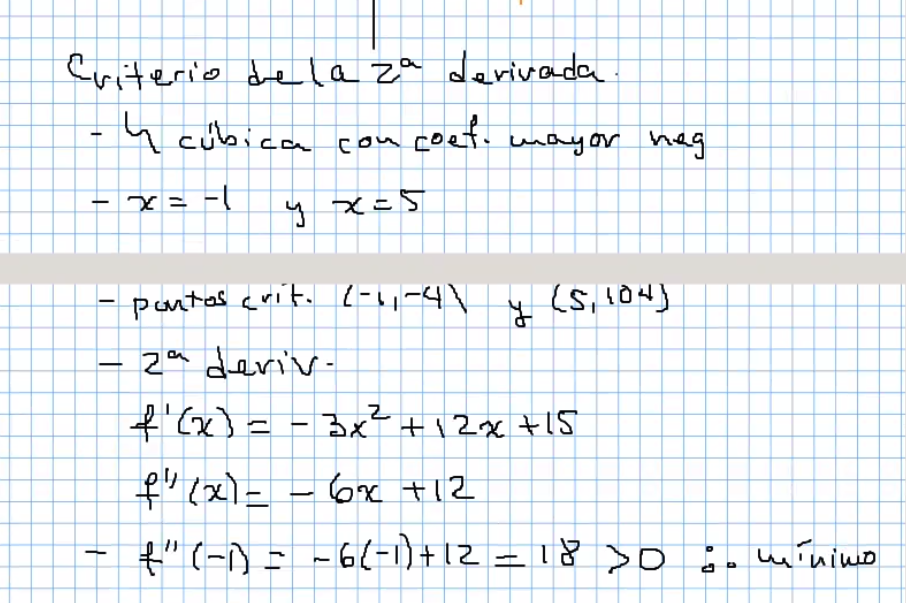 Criterio de la 2ª derivada.
- cúbica con coef. mayor neg
- x = -1 y x = 5
- puntos crit. (-1, -4) y (5, 104)
- 2ª deriv.
f'(x) = - 3x² + 12x + 15
f''(x) = - 6x + 12
- f''(-1) = -6(-1) + 12 = 18 > 0 ∴ mínimo